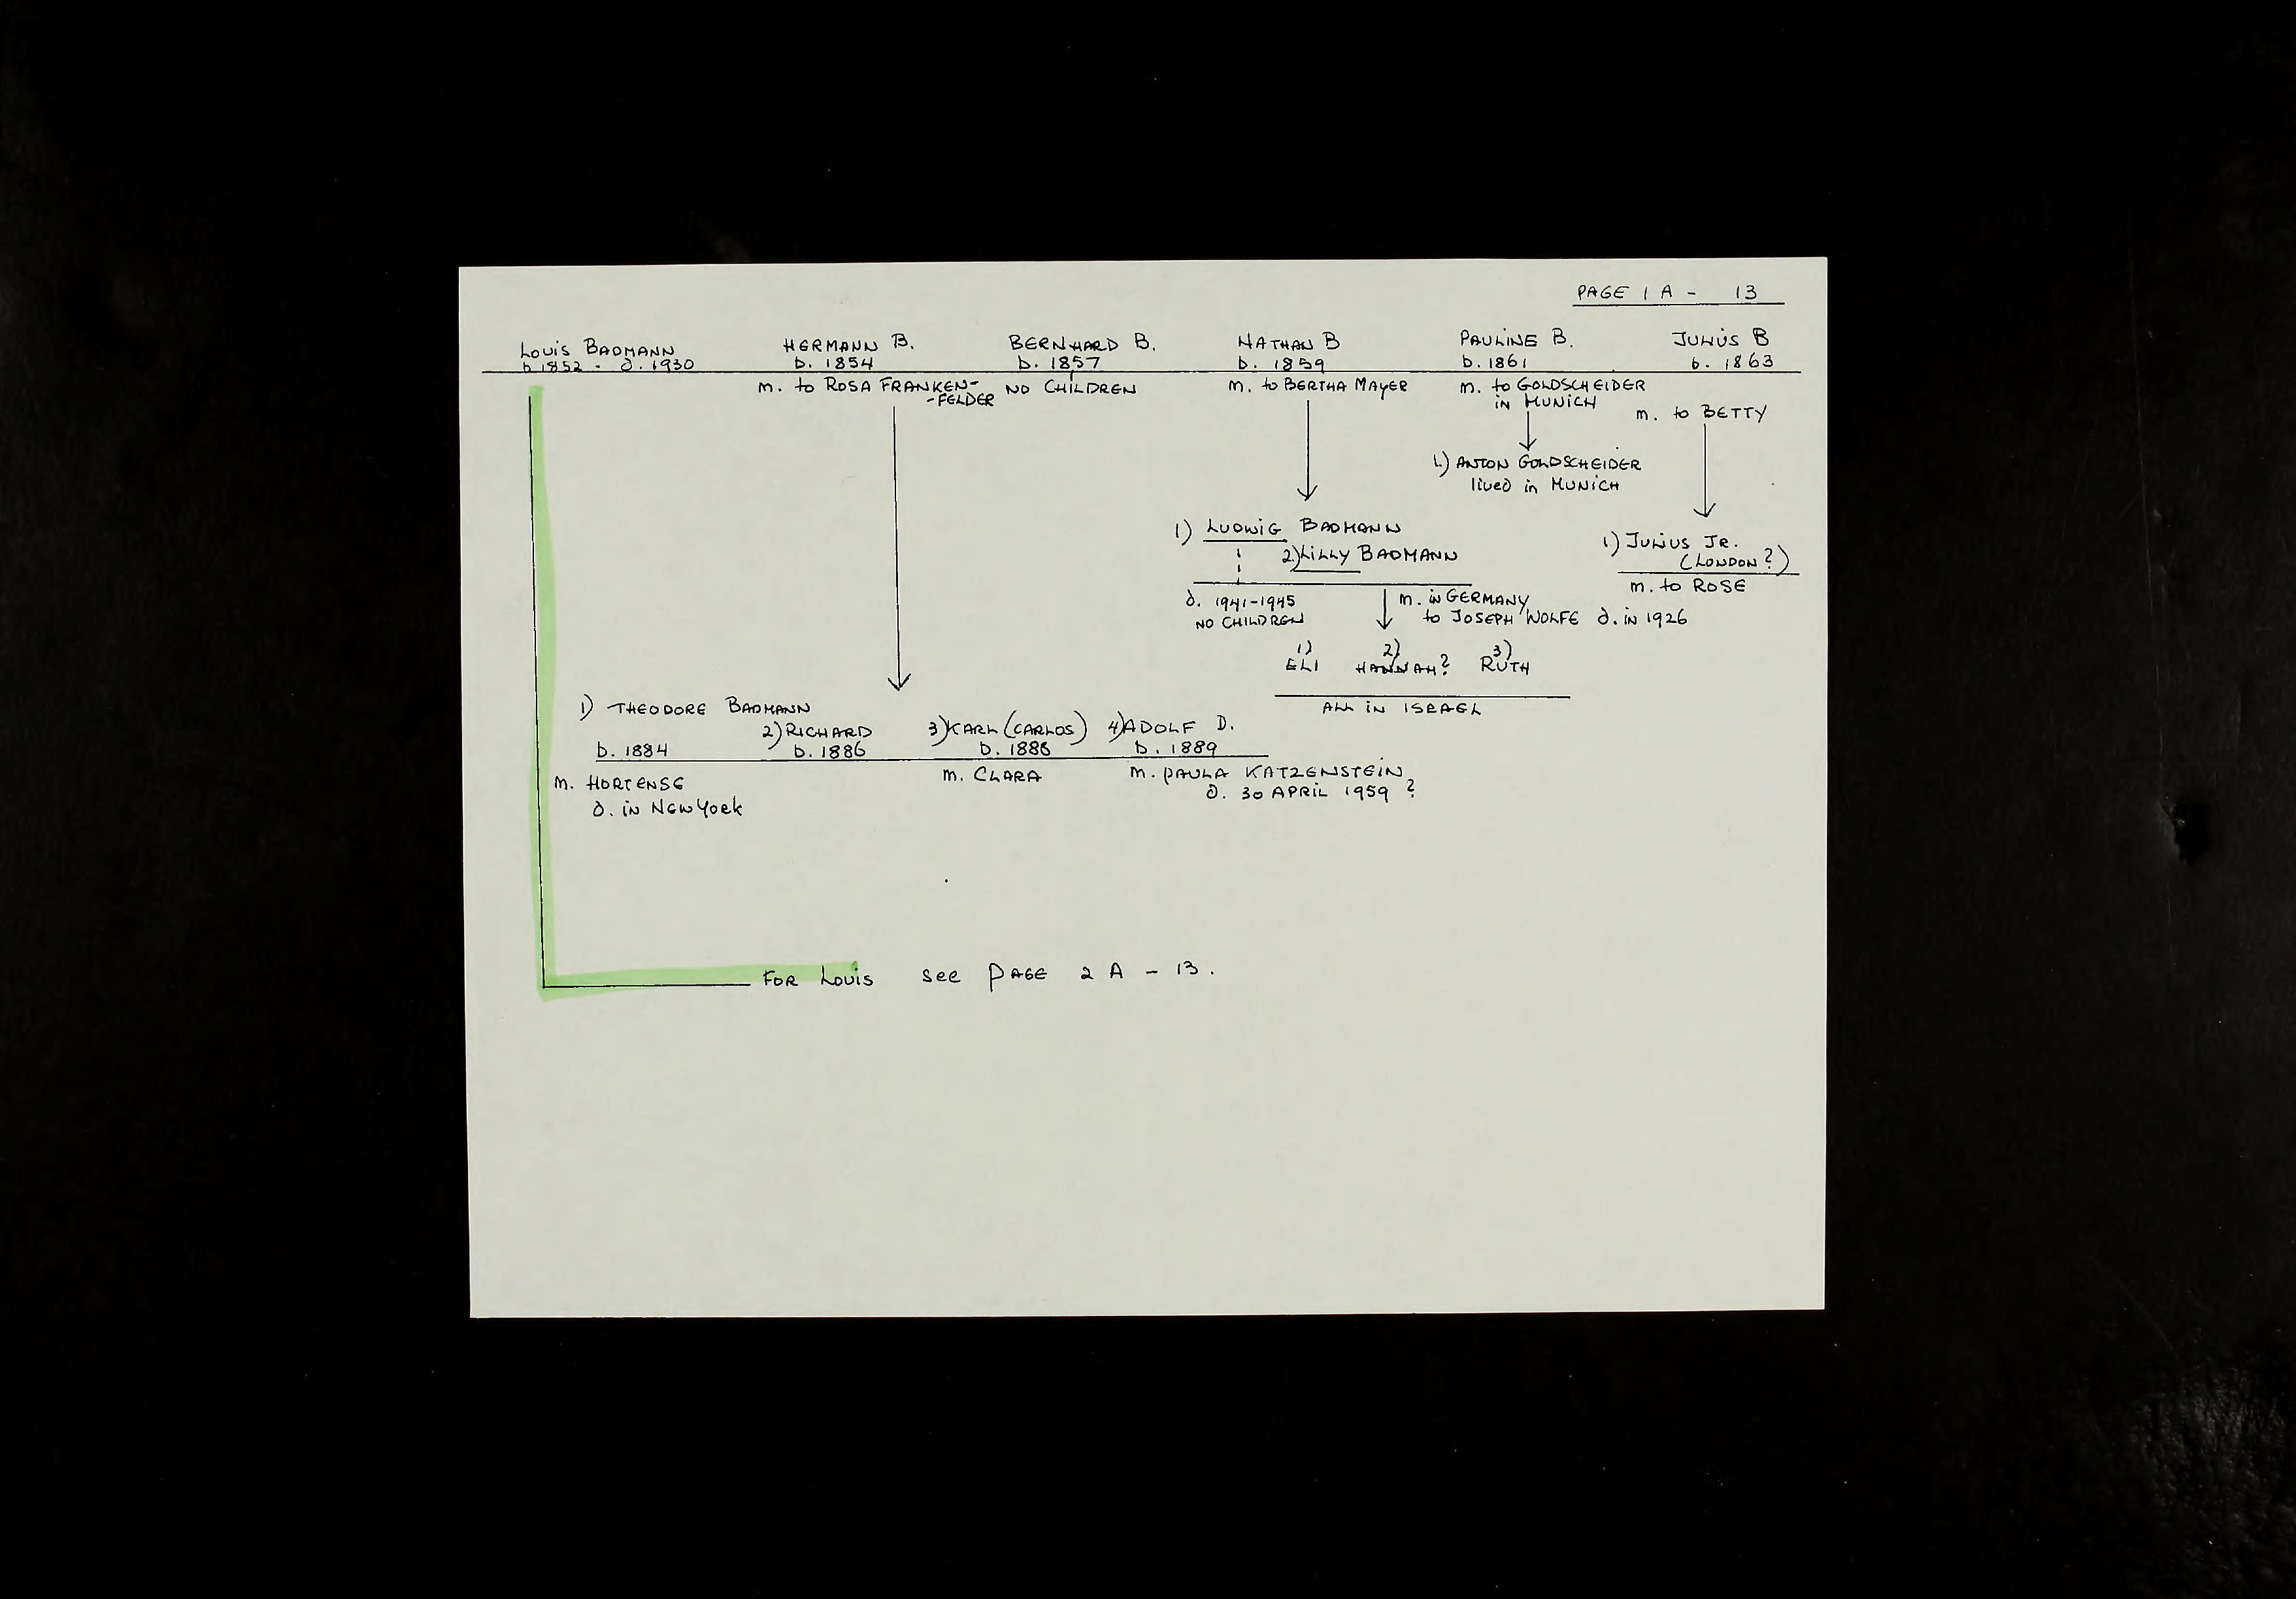 PAGE 1 A - 13
Louis BADMANN
b 1852 - d. 1930
HERMANN B.
b. 1854
m. to ROSA FRANKEN-
-FELDER
BERNHARD B.
b. 1857
NO CHILDREN
NATHAN B
b. 1859
m. to BERTHA MAYER
PAULINE B.
b. 1861
m. to GOLDSCHEIDER
IN MUNICH
JULIUS B
b. 1863
m. to BETTY
1.) ANTON GOLDSCHEIDER
lived in MUNICH
1) LUDWIG BADMANN
2) LILLY BADMANN
d. 1941-1945
NO CHILDREN
m. in GERMANY
to JOSEPH WOLFE d. in 1926
1) JULIUS JR.
(LONDON?)
m. to ROSE
1) 2) 3)
ELI HANNAH? RUTH
ALL in ISRAEL
1) THEODORE BADMANN
b. 1884
m. HORTENSE
d. in New York
2) RICHARD
b. 1886
3) KARL (CARLOS)
b. 1888
m. CLARA
4) ADOLF D.
b. 1889
m. PAULA KATZENSTEIN
d. 30 APRIL 1959 ?
FOR Louis see PAGE 2 A - 13.